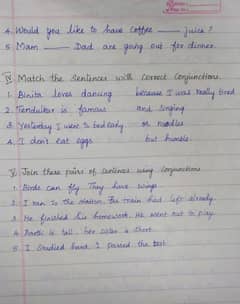 4. Would you like to have coffee ____ juice?
5 Mam ____ Dad are going out for dinner.
IV Match the Sentences with Correct Conjunctions.
1. Binita loves dancing because I was really tired
2. Tendulkar is famous and singing
3. Yesterday I went to bed early or noodles
4. I don't eat eggs but humble.
V Join these pairs of sentences using conjunctions
1. Birds can fly. They have wings
2. I ran to the station. The train had left already.
3. He finished his homework. He went out to play.
4. is tall. her sister is short.
5 I studied hard. I passed the test.